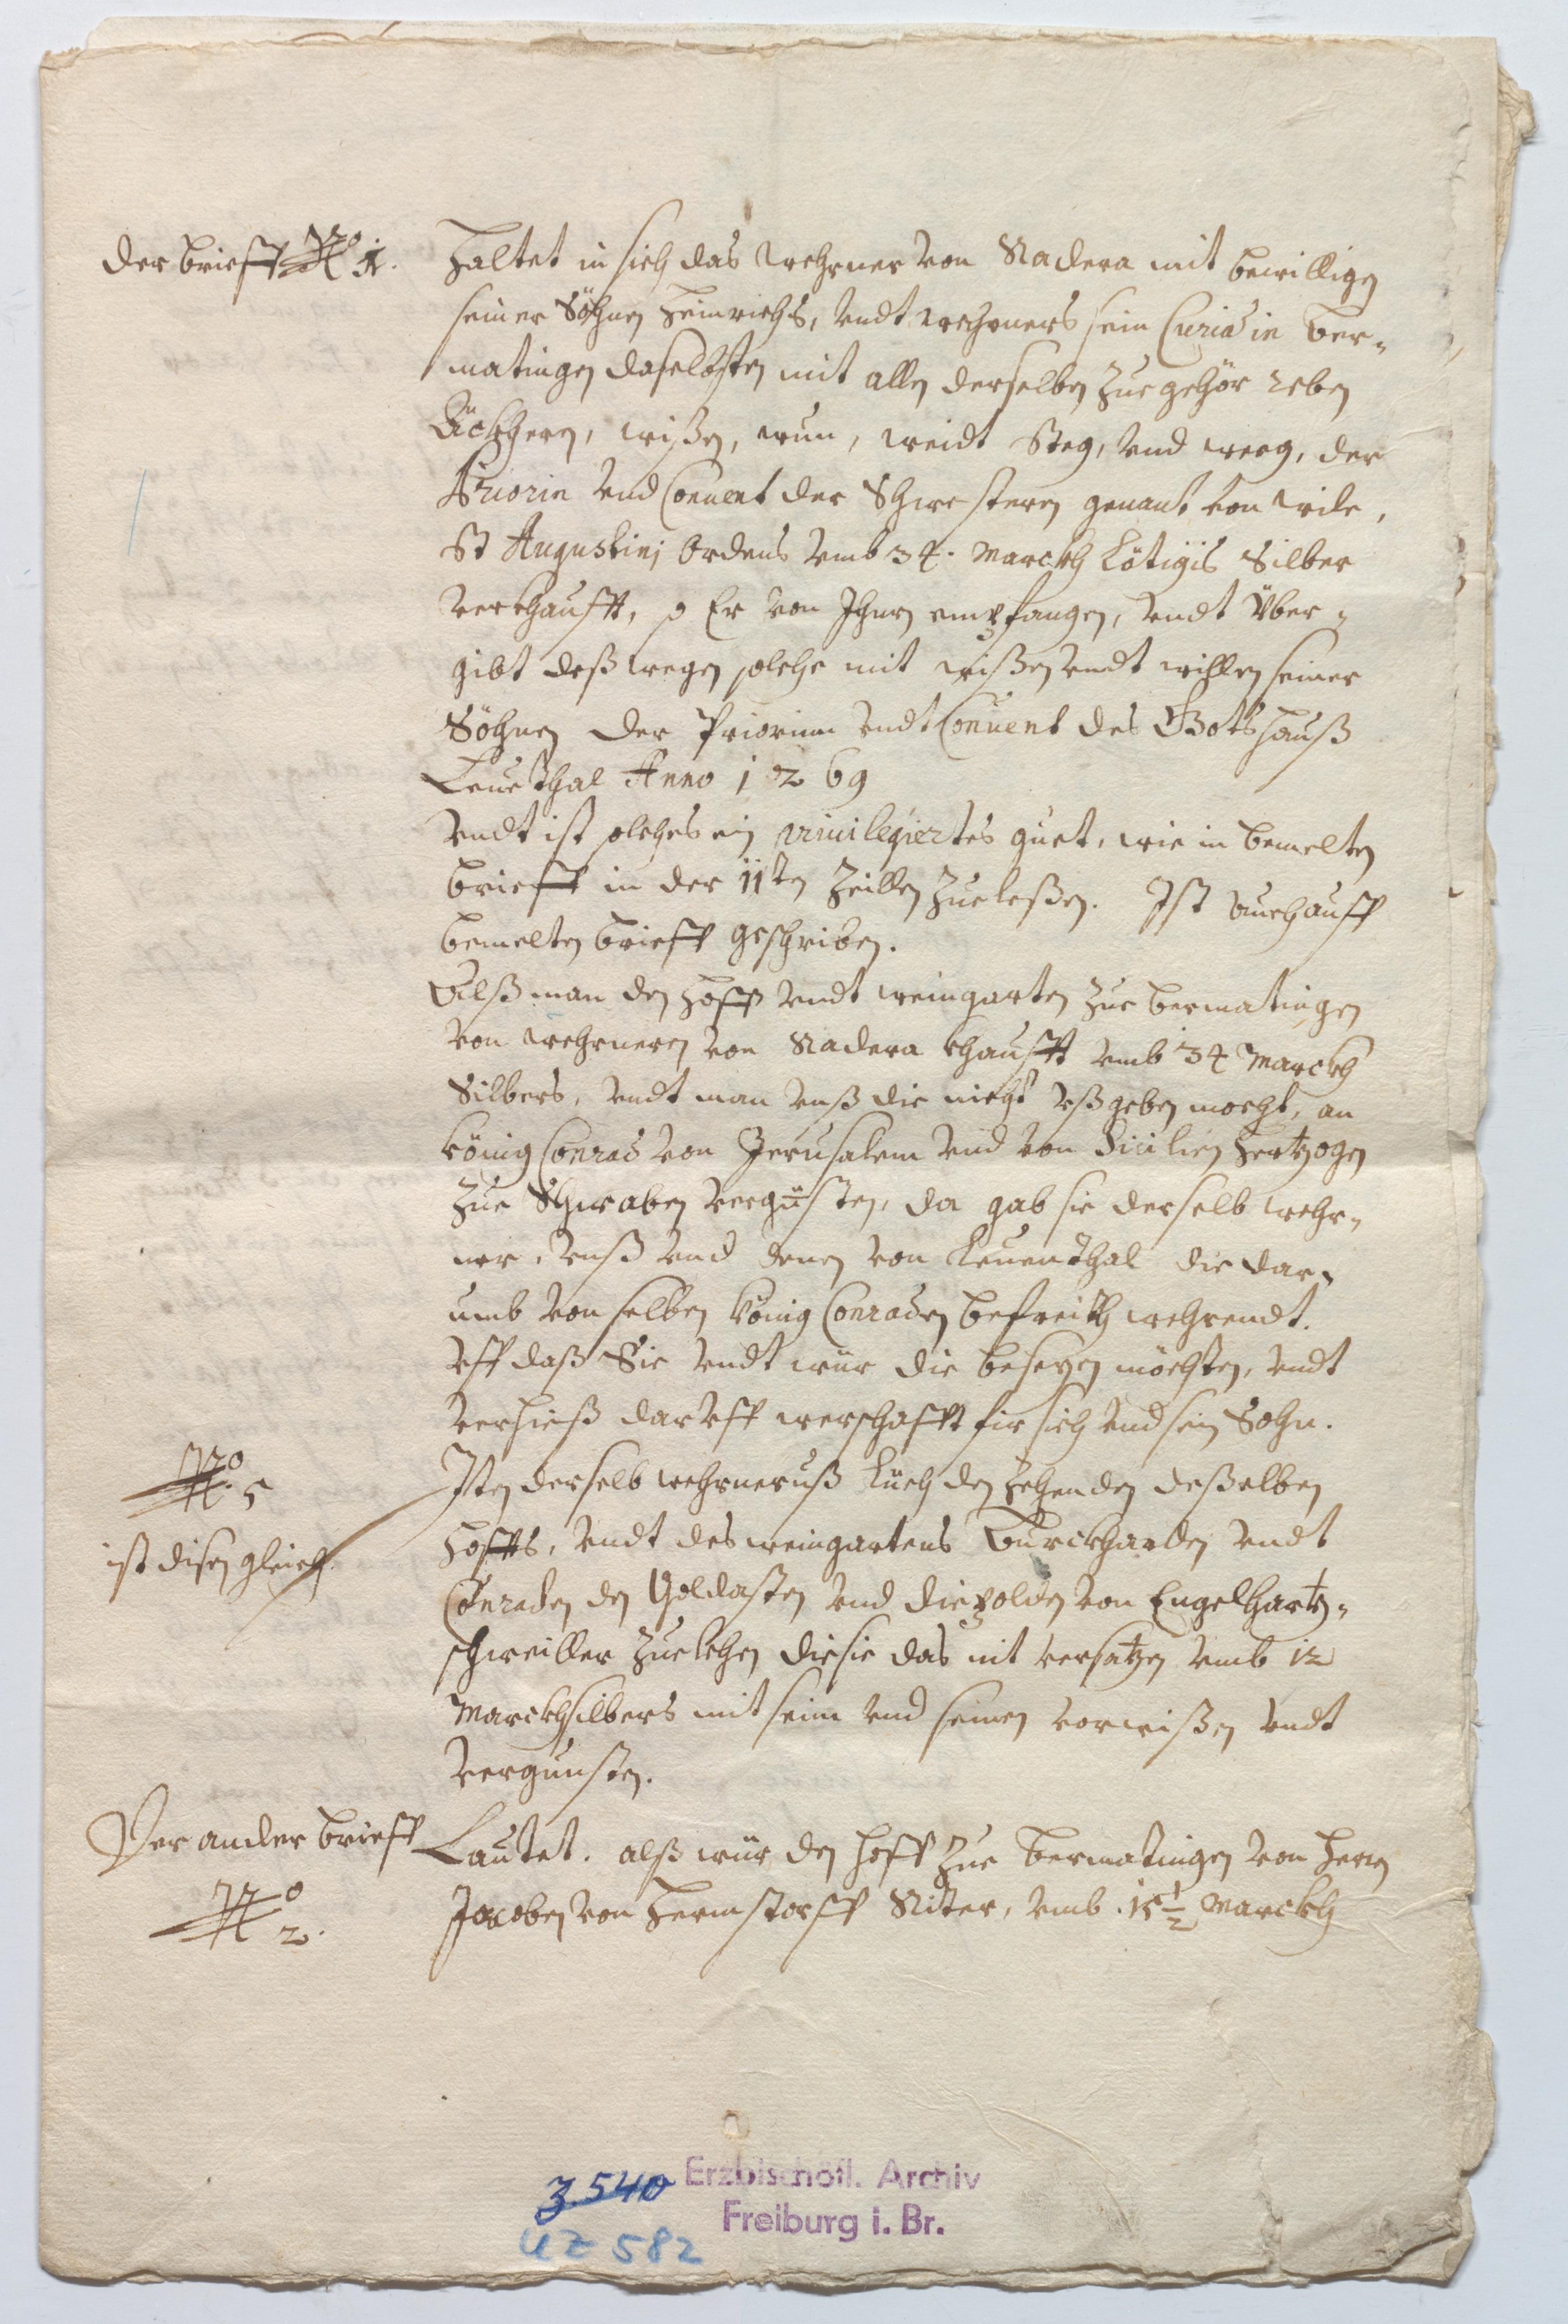 der brieff No 1.
Haltet in sich das Wehrner von Radera mit bewilligen
seiner Söhnen Heinrichs, vndt Wehrners sein Curia in Ber-
matingen daselbsten mit allen derselben zuegehör reben
Äckheren, wißen, wun, weidt Steg, vnd weeg, der
Priorin vnd Conuent der Schwesteren genant von Wile,
St Augustini Ordens vmb 34. Marckh Lötigis Silber
verkhaufft, so Er von Ihnen empfangen, vndt Über-
gibt deßwegen solche mit wißen vndt willen seiner
Söhnen der Priorinn vndt Conuent des Gotshauß
Leuethal Anno 1269
vndt ist solches ein priuilegiertes guet, wie in bemelten
brieff in der 11ten Zeillen zue leßen. Ist auch auff
bemelten brieff geschriben.
Alß man den Hoff vndt weingarten zue bermatingen
von Wehrneren von Radera khaufft vmb 34 Marckh
Silbers, vndt man vnß die nicht vßgeben mocht, an
könig Conrad von Jerusalem vnd von Sicilien Hertzogen
zue Schwaben vergüsten, da gab sie derselb Wehr-
ner, vnß vnd denen von Leuenthal die dar-
umb von selben König Conraden befreith wehrendt.
vff daß Sie vndt wür die besezen möchten, vndt
verhieß daruff werschafft fir sich vnd sein Sohn.
No. 5
ist disen gleich.
Iten derselb Wehrner vß Lüch den Zehenden deßelben
Hoffts, vndt des weingartens Burckharden vndt
Conraden den Goldasten vnd Diepolden von Engelhartz-
schweiller zue lehen die sie das nit versatzen vmb 12
Marckh silbers mit seim vnd seinen vorwißen vndt
vergunsten.
Der ander brieff
No 2.
Lautet. alß wür den hoff zue bermatingen von Heren
Jacoben von Hermstorff Riter, vmb. 15 1/2 Marckh
Erzbischöfl. Archiv
Freiburg i. Br.
3.540
UZ 582